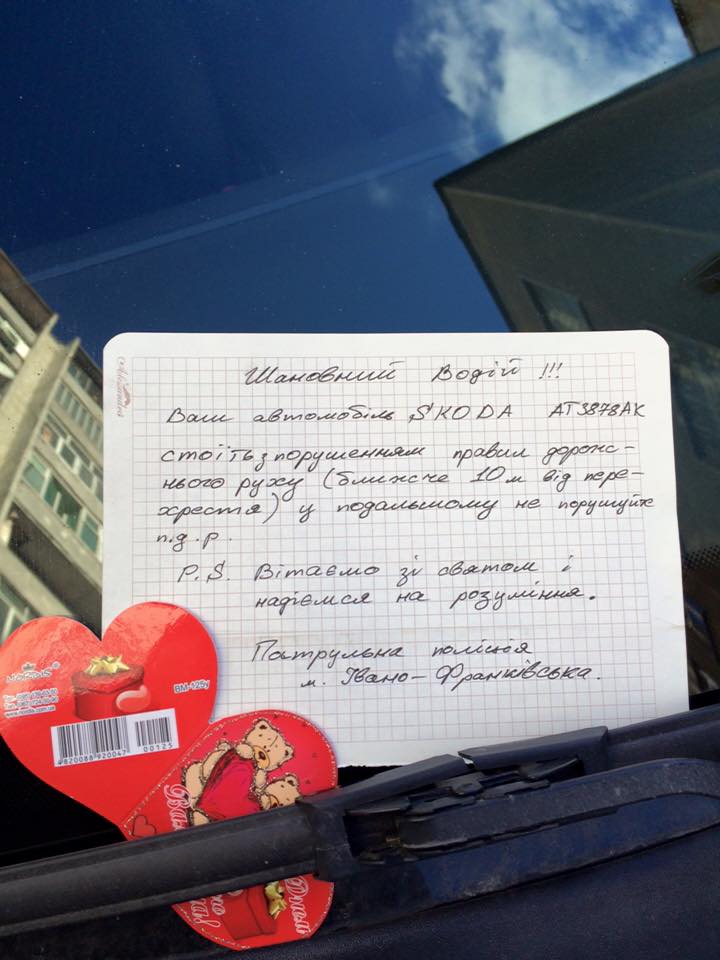 Шановний Водій !!!
Ваш автомобіль SKODA АТ3878АК
стоїть з порушенням правил дорож-
нього руху (ближче 10 м від пере-
хрестя) у подальшому не порушуйте
п.д.р.
P.S. Вітаємо зі святом і
надіємся на розуміння.
Патрульна поліція
м. Івано-Франківська.
ВМ-125у
4820088920047
00125